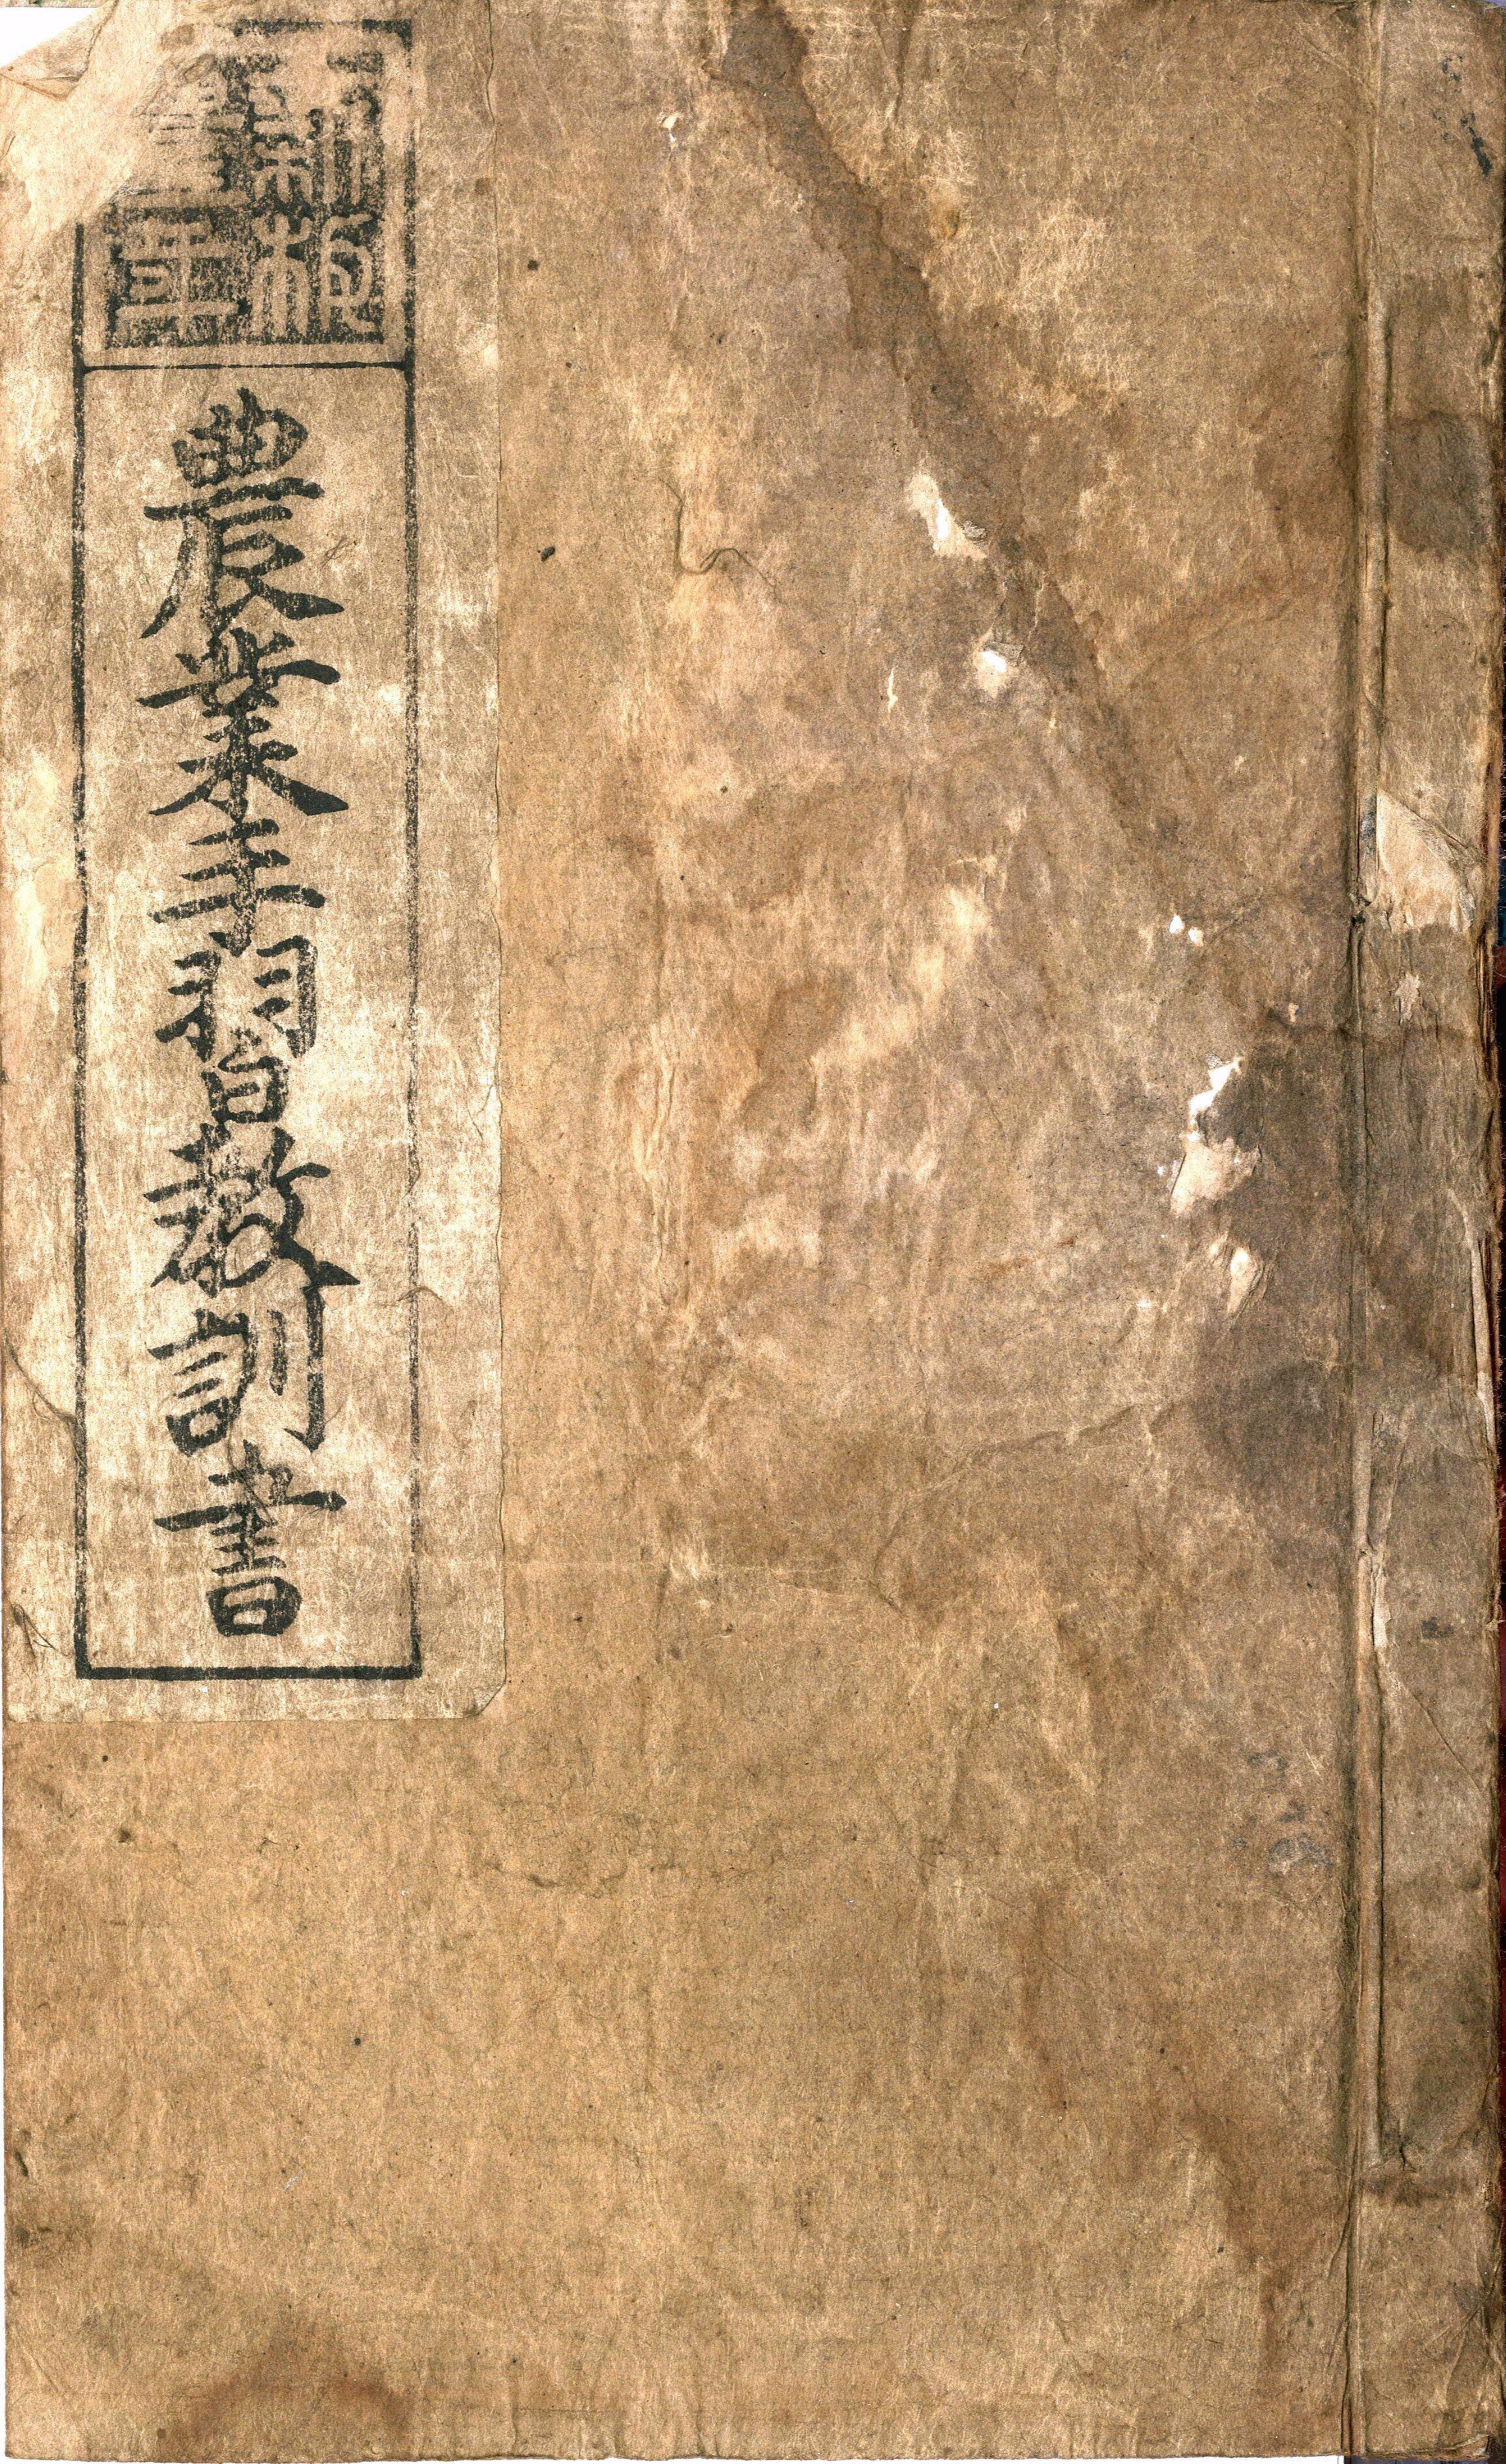 新板
農業手習教訓書